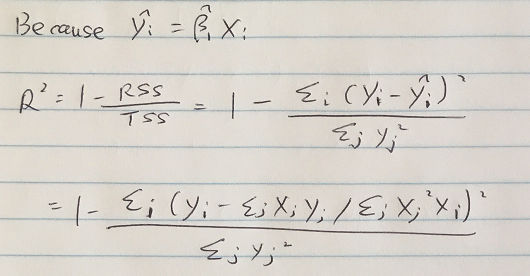 Because ŷᵢ = β̂₁ Xᵢ
R² = 1 - RSS/TSS = 1 - Σᵢ (yᵢ - ŷᵢ)² / Σⱼ yⱼ²
= 1 - Σᵢ (yᵢ - Σⱼ Xⱼ yⱼ / Σⱼ Xⱼ² Xᵢ)² / Σⱼ yⱼ²